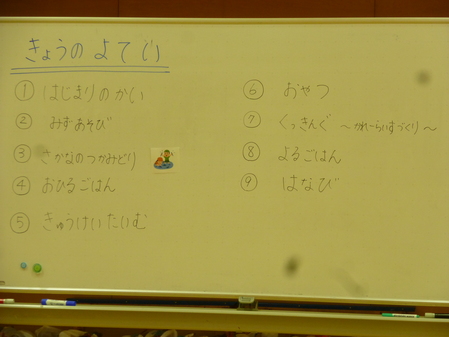 きょうのよてい
① はじまりのかい
② みずあそび
③ さかなのつかみどり
④ おひるごはん
⑤ きゅうけいたいむ
⑥ おやつ
⑦ くっきんぐ ～かれーらいすづくり～
⑧ よるごはん
⑨ はなび